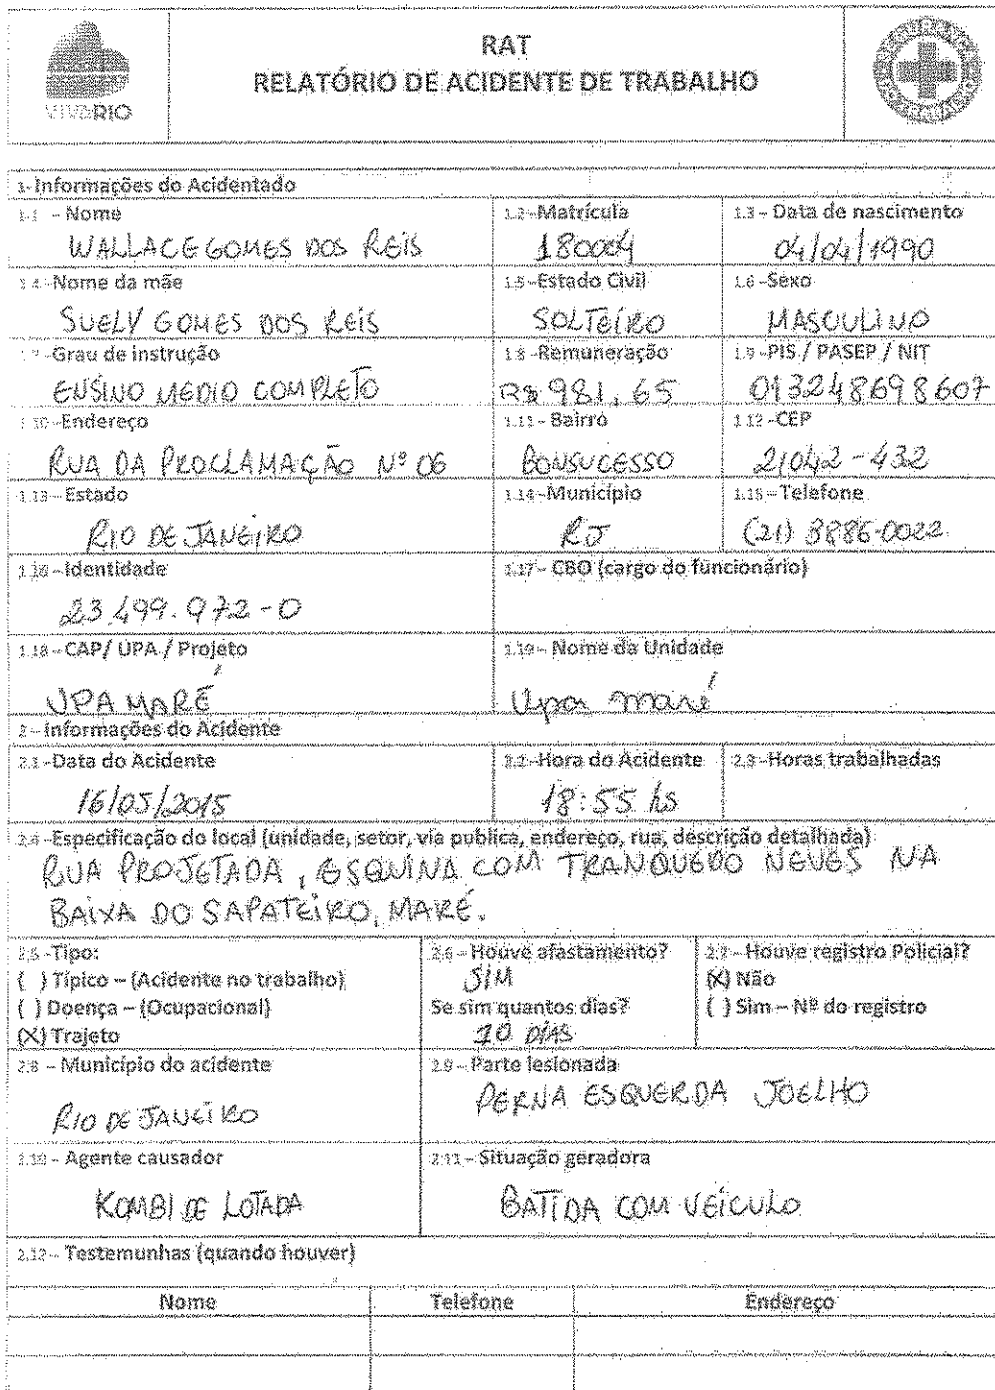 VIVARIO
RAT
RELATÓRIO DE ACIDENTE DE TRABALHO
1- Informações do Acidentado
1.1 – Nome
WALLACE GOMES DOS REIS
1.2 -Matrícula
180004
1.3 – Data de nascimento
04/04/1990
1.4 -Nome da mãe
SUELY GOMES DOS REIS
1.5 -Estado Civil
SOLTEIRO
1.6 -Sexo
MASCULINO
1.7 -Grau de instrução
ENSINO MEDIO COMPLETO
1.8 -Remuneração
R$ 981,65
1.9 -PIS / PASEP / NIT
013248698607
1.10 -Endereço
RUA DA PROCLAMAÇÃO Nº 06
1.11 - Bairro
BONSUCESSO
1.12 -CEP
21042-432
1.13 – Estado
RIO DE JANEIRO
1.14 -Município
RJ
1.15 – Telefone
(21) 3886-0022
1.16 – Identidade
23.499.972-0
1.17 – CBO (cargo do funcionário)
1.18 – CAP/ UPA / Projeto
UPA MARÉ
1.19 – Nome da Unidade
Upa maré
2 – Informações do Acidente
2.1 -Data do Acidente
16/05/2015
2.2 -Hora do Acidente
18:55 hs
2.3 -Horas trabalhadas
2.4 -Especificação do local (unidade, setor, via publica, endereço, rua, descrição detalhada)
RUA PROJETADA, ESQUINA COM TRANQUEDO NEVES NA
BAIXA DO SAPATEIRO, MARÉ.
2.5 -Tipo:
( ) Típico – (Acidente no trabalho)
( ) Doença – (Ocupacional)
(X) Trajeto
2.6 – Houve afastamento?
SIM
Se sim quantos dias?
10 DIAS
2.7 – Houve registro Policial?
(X) Não
( ) Sim – Nº do registro
2.8 – Município do acidente
RIO DE JANEIRO
2.9 – Parte lesionada
PERNA ESQUERDA JOELHO
2.10 – Agente causador
KOMBI DE LOTADA
2.11 – Situação geradora
BATIDA COM VEÍCULO
2.12 – Testemunhas (quando houver)
Nome
Telefone
Endereço